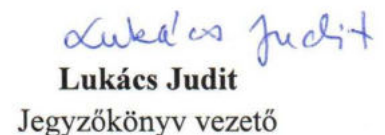 Lukács Judit
Lukács Judit
Jegyzőkönyv vezető